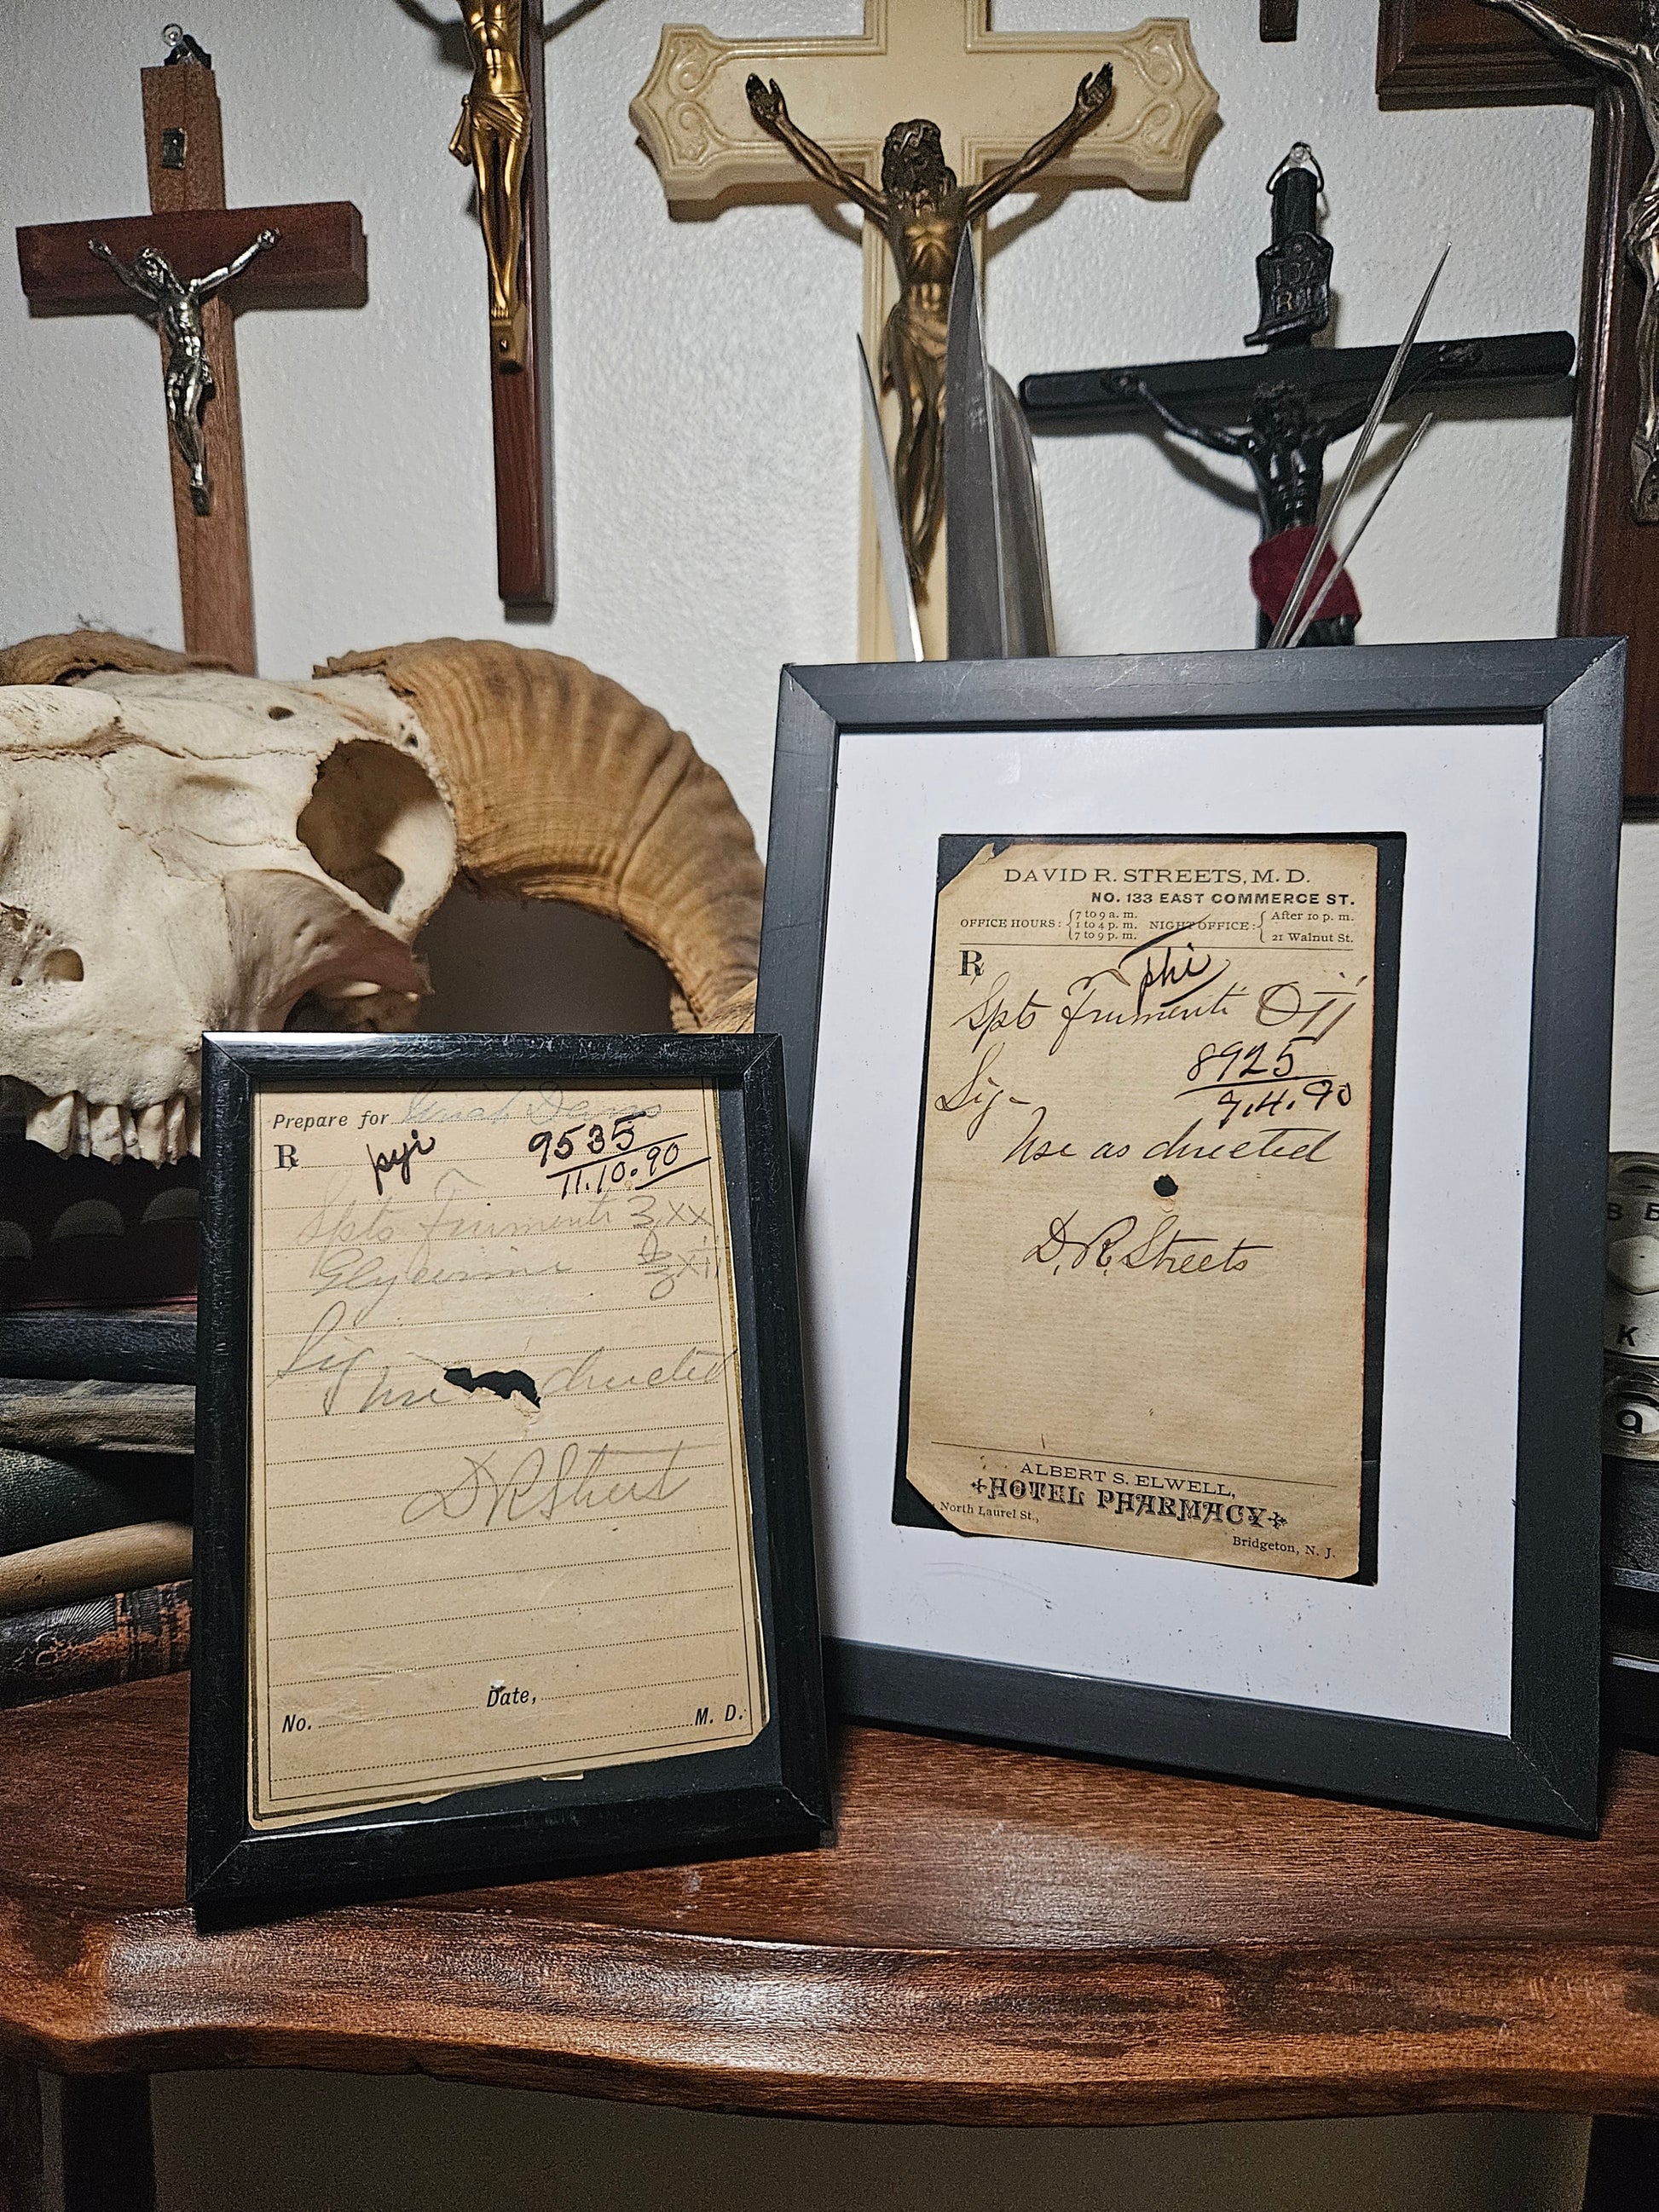 Prepare for
℞
pyi
9535
11.10.90
Spts Frumenti ℥xx
Glycerine
Sig
Use directed
D R Streets
Date,
No. M. D.
DAVID R. STREETS, M. D.
NO. 133 EAST COMMERCE ST.
OFFICE HOURS: { 7 to 9 a. m. 1 to 4 p. m. 7 to 9 p. m. NIGHT OFFICE: { After 10 p. m. 21 Walnut St.
℞
phi
Spts Frumenti Oij
8925
7.4.90
Sig-
Use as directed
D. R. Streets
ALBERT S. ELWELL,
HOTEL PHARMACY
North Laurel St.,
Bridgeton, N. J.